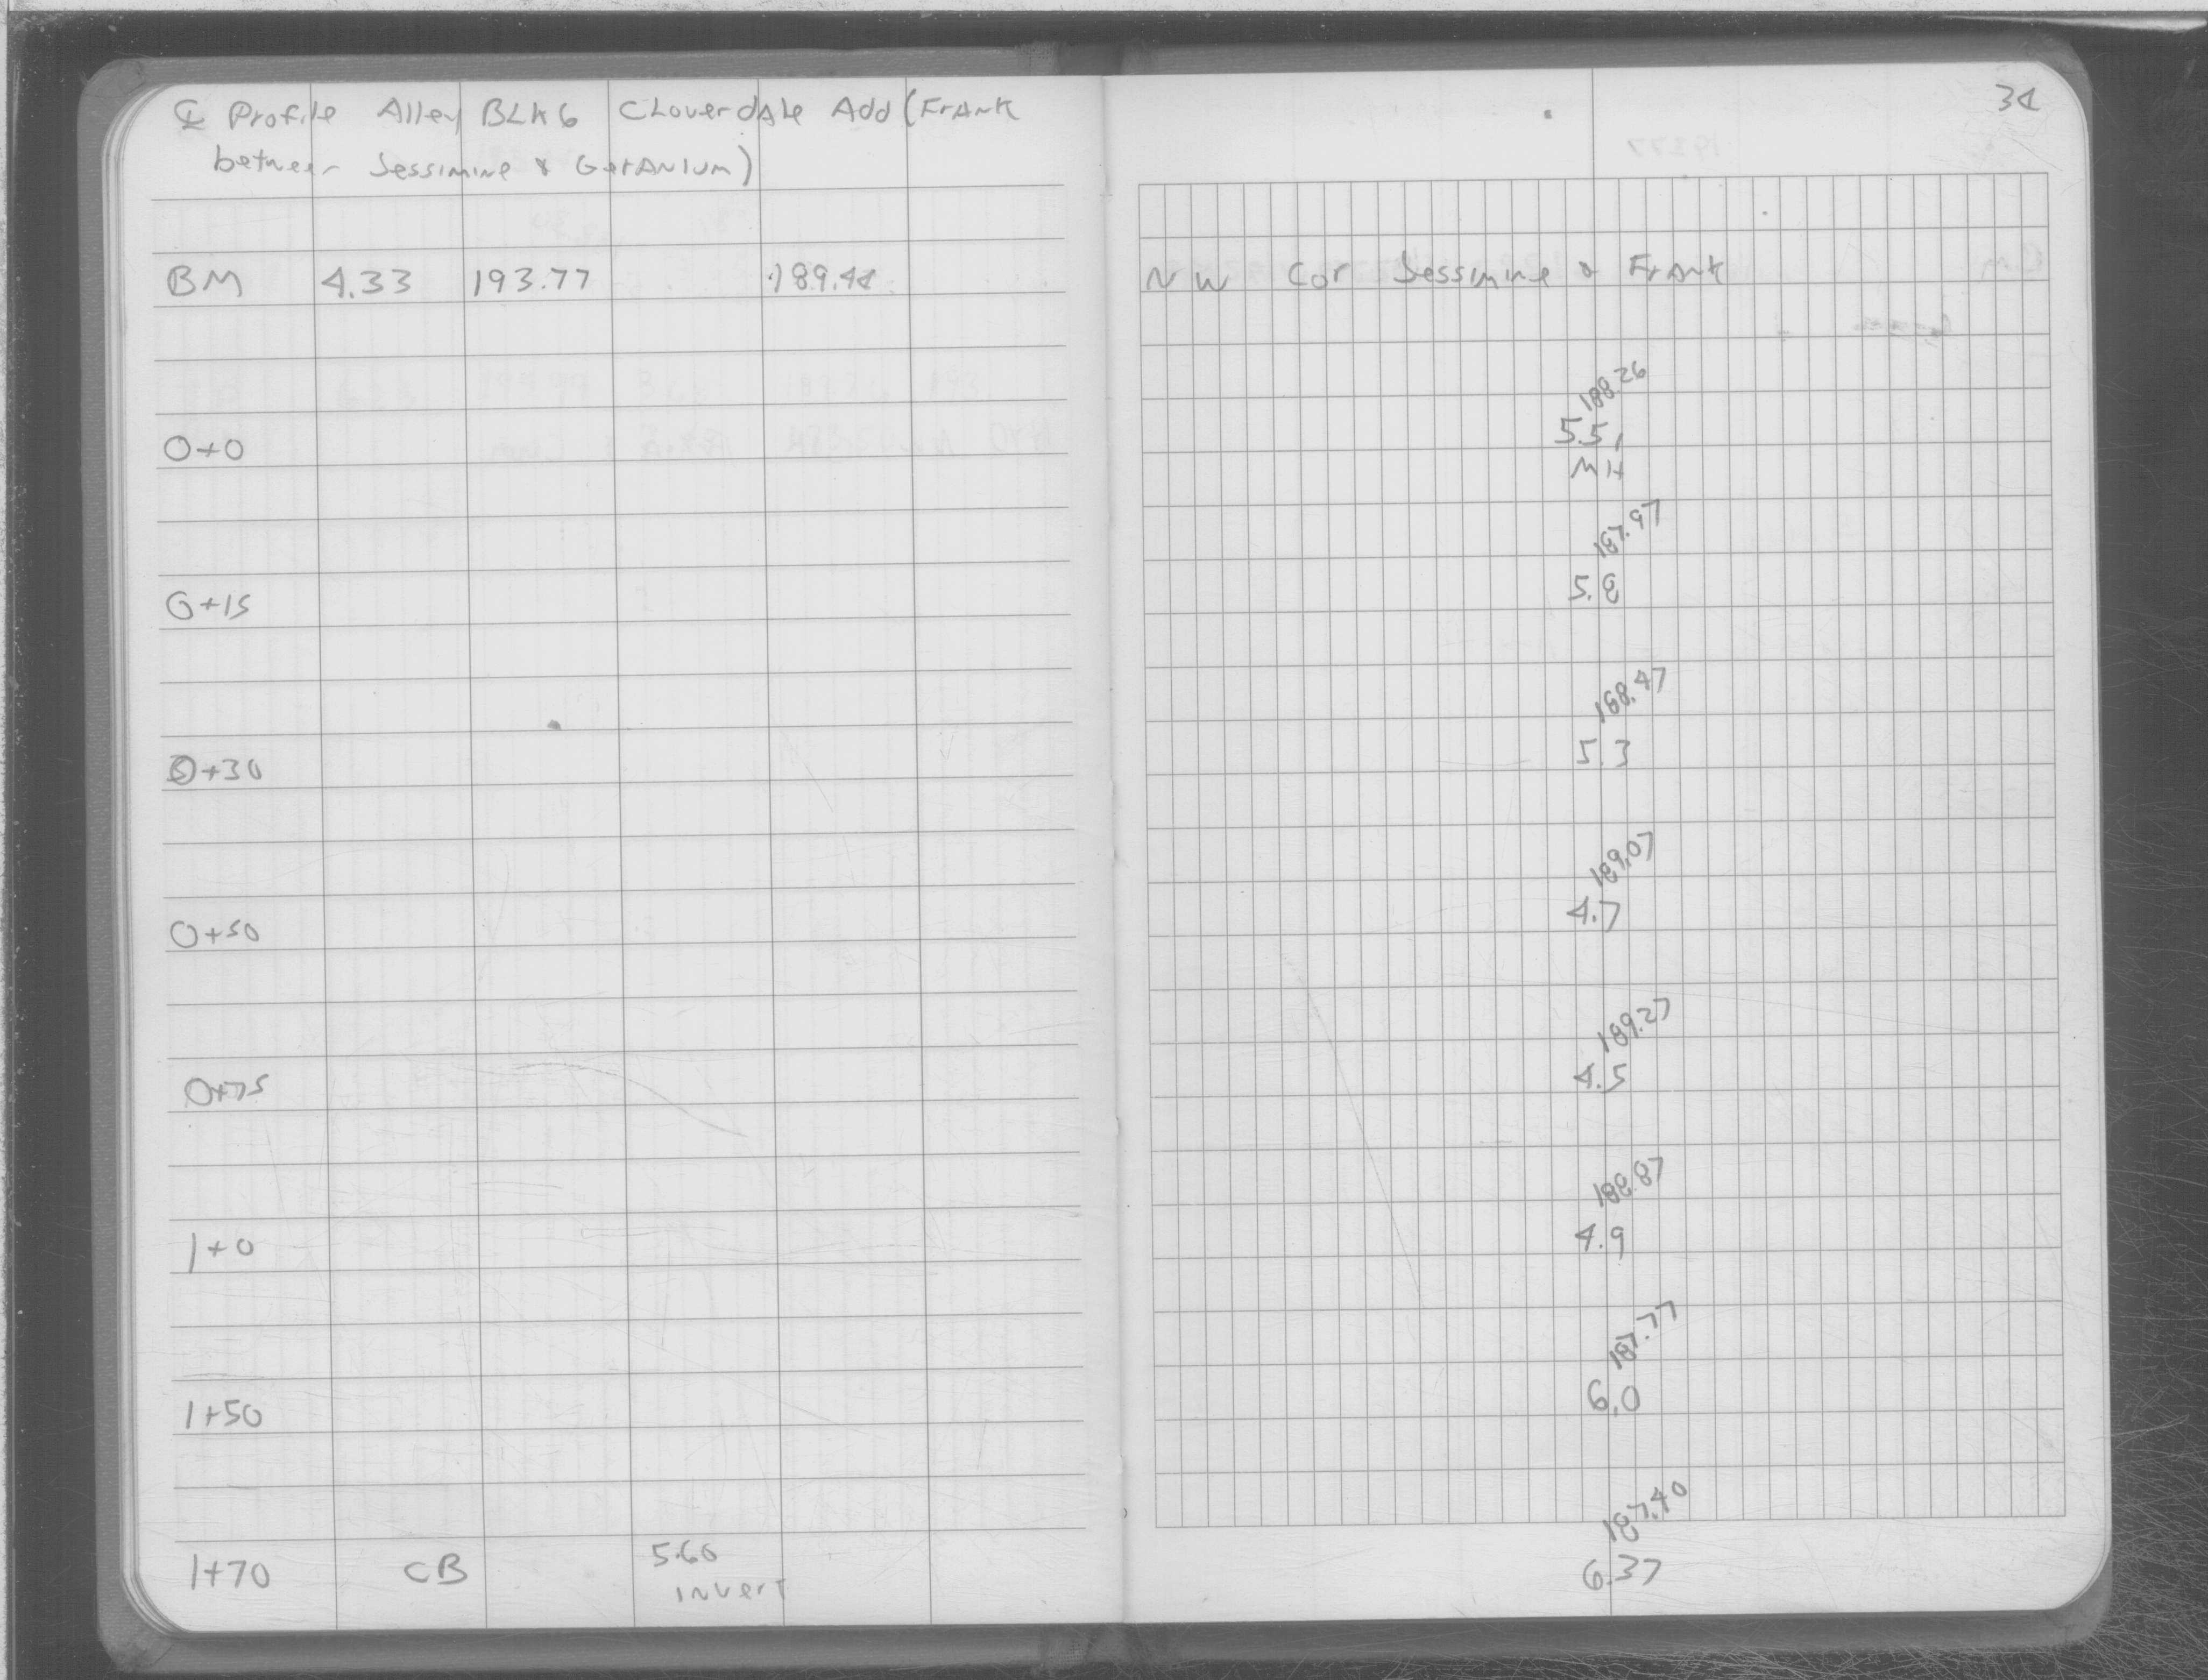 ℄ Profile Alley BLK 6 Cloverdale Add (Frank
between Jessimine & Geranium)
34
BM 4.33 193.77 189.44 NW Cor Jessimine & Frank
188.26
0+0 5.51
MH
187.97
0+15 5.8
188.47
0+30 5.3
189.07
0+50 4.7
189.27
0+75 4.5
188.87
1+0 4.9
187.77
1+50 6.0
187.40
1+70 CB 5.60 6.37
invert